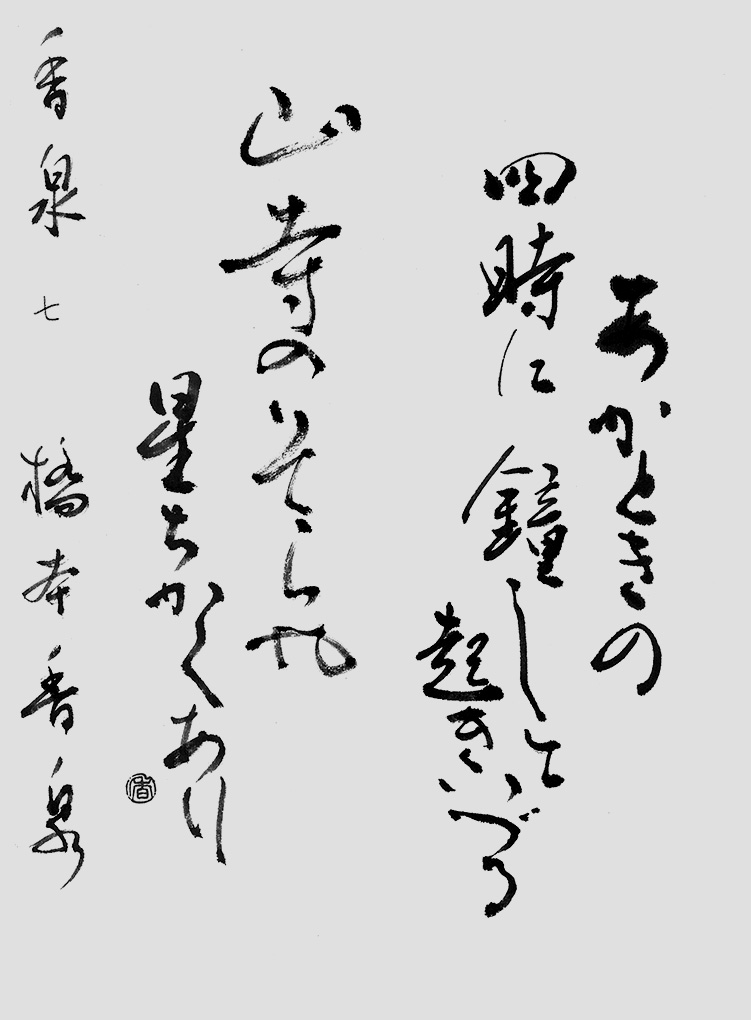 あかときの
四時に 鐘
起きいづる
山寺の
星ちかくあり
香泉 七 橋本香泉